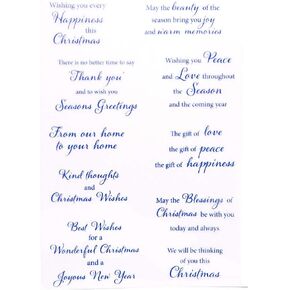 Wishing you every
Happiness
this
Christmas
There is no better time to say
Thank you
and to wish you
Seasons Greetings
From our home
to your home
Kind thoughts
and
Christmas Wishes
Best Wishes
for a
Wonderful Christmas
and a
Joyous New Year
May the beauty of the
season bring you joy
and warm memories
Wishing you Peace
and Love throughout
the Season
and the coming year
The gift of love
the gift of peace
the gift of happiness
May the Blessings of
Christmas be with you
today and always.
We will be thinking
of you this
Christmas